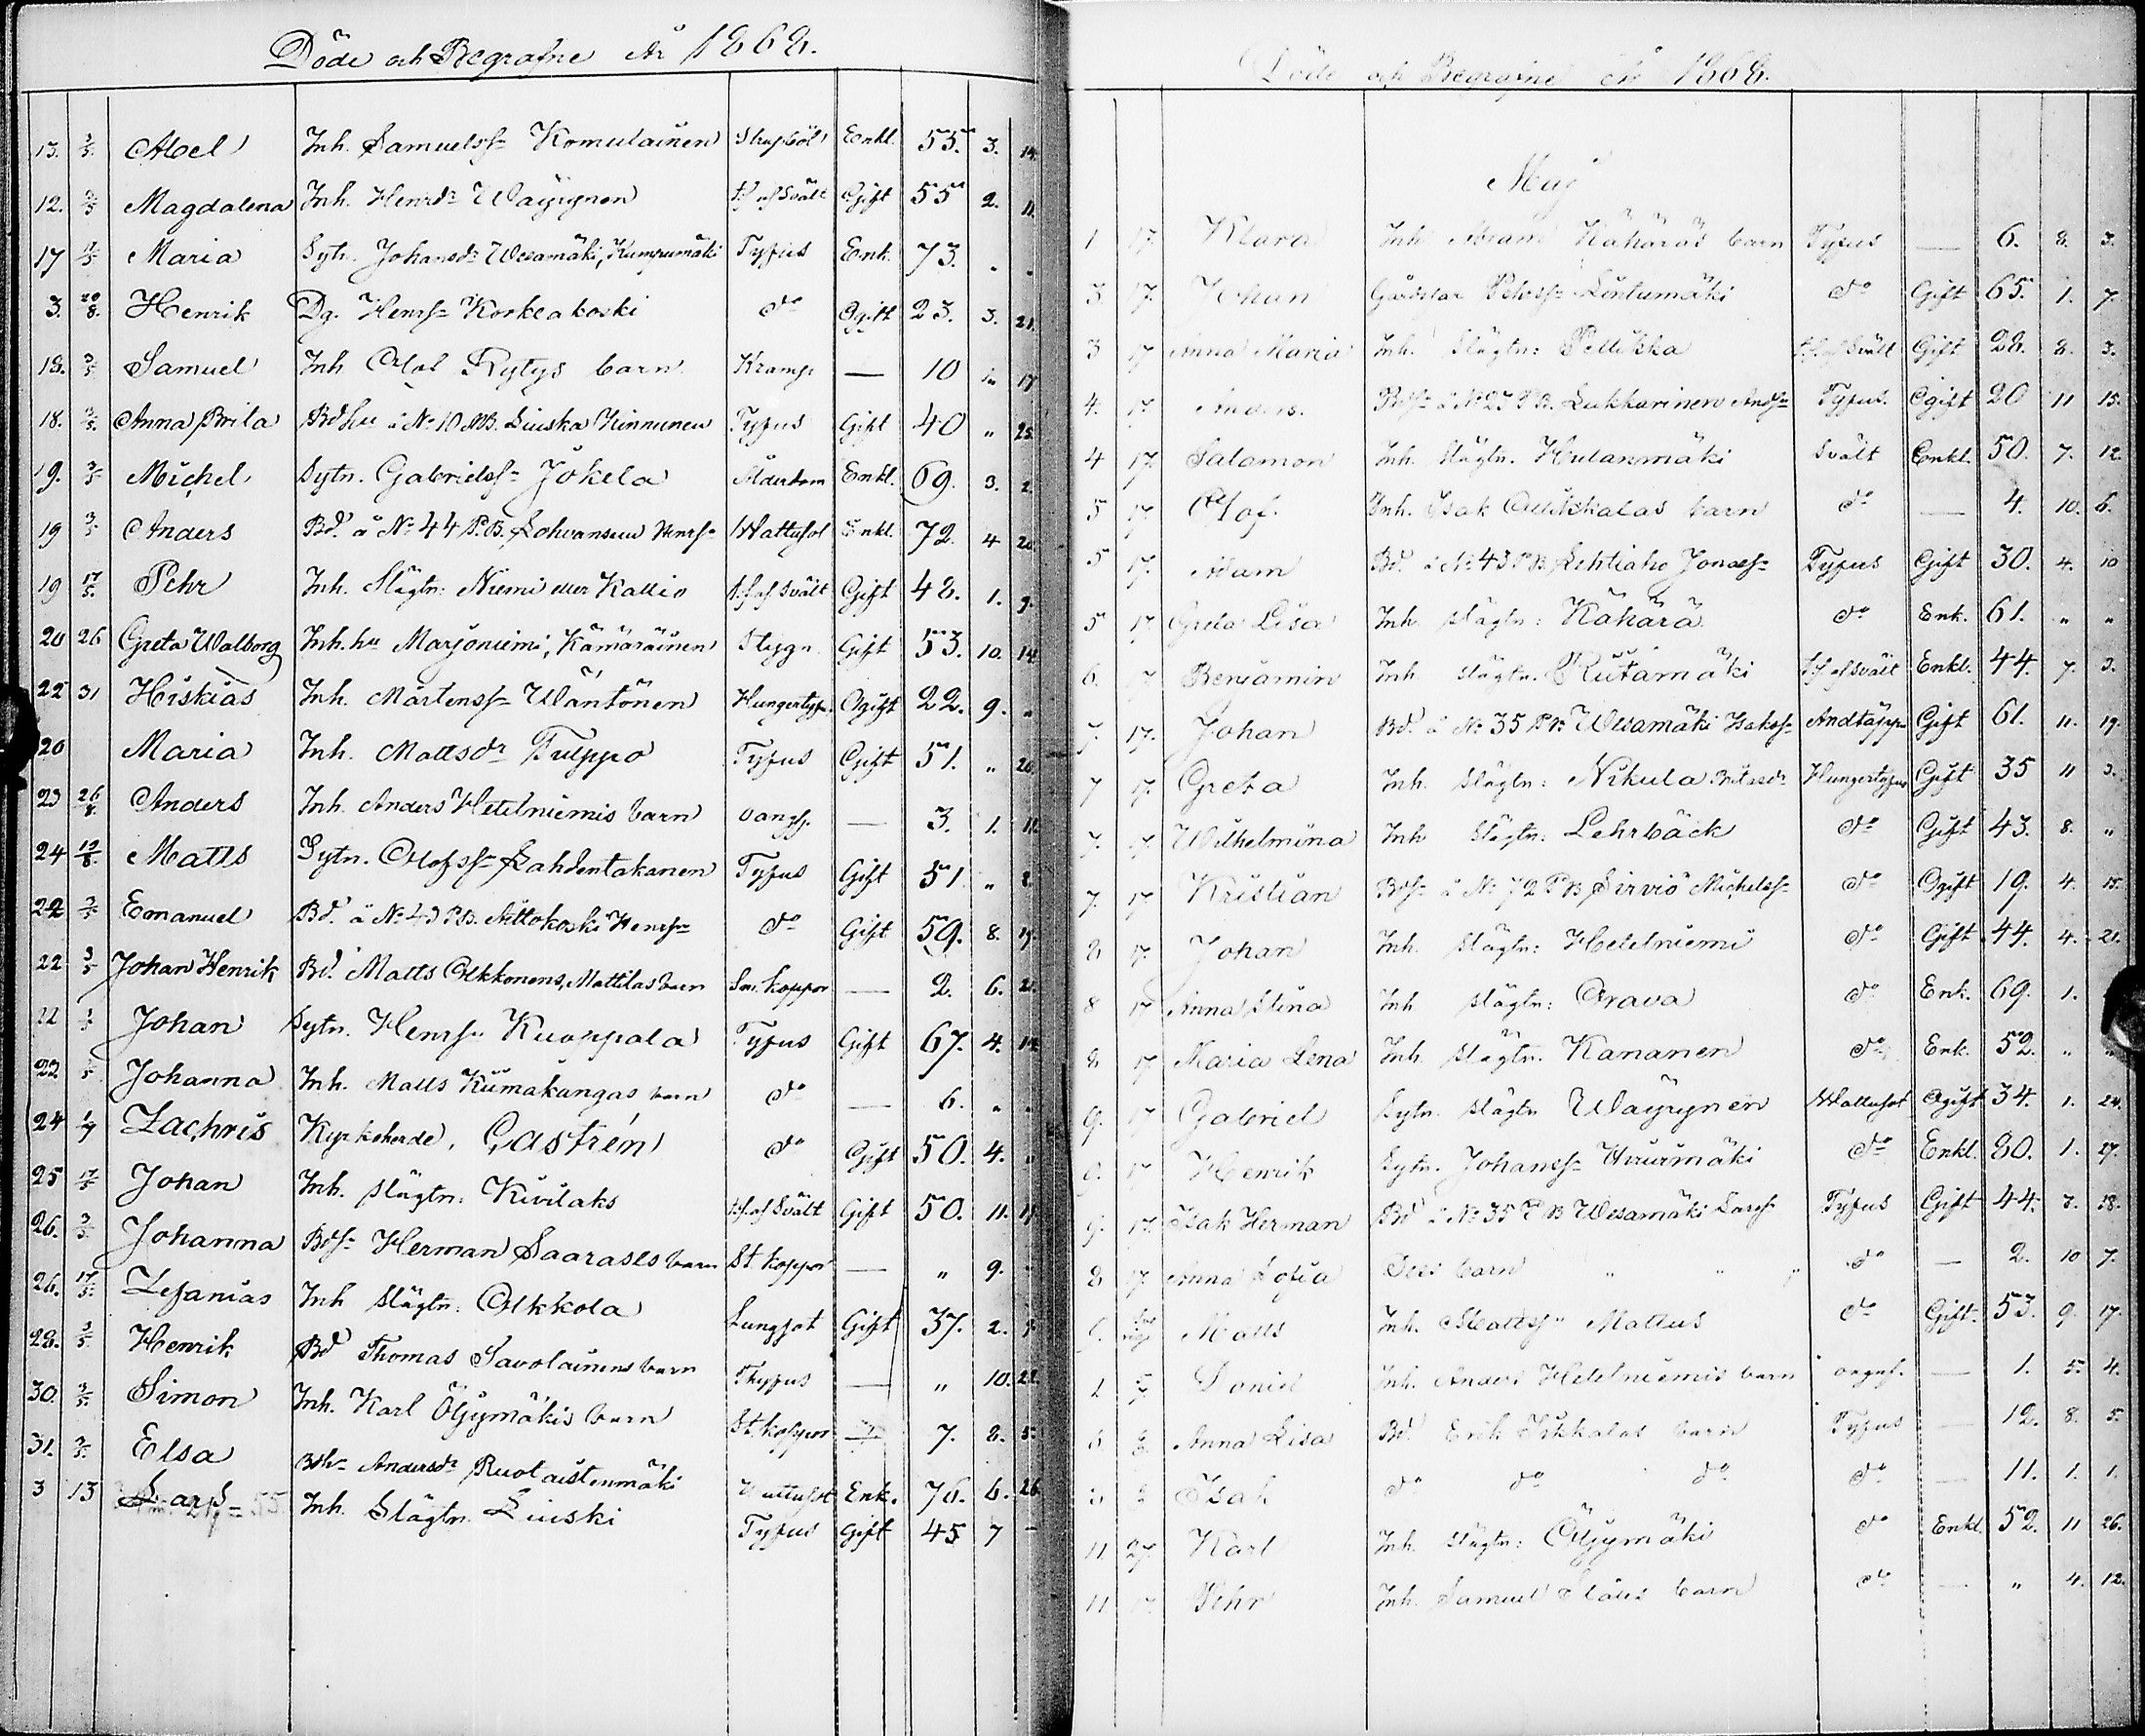 Döde och Begrafne År 1868.
13. 3/5. Abel Inh. Samuelss= Komulainen Enkl. 55. 3. 14.
12. 3/5 Magdalena Inh. Henrsdr Wäyrynen Gift 55 2. 11.
17 Maria Sytn. Johansdr Wesamäki, Kumpumäki Typus Enk. 73. " "
3. 20/8. Henrik Dg. Henrs= Korkeakoski do Ogift 23. 3. 21.
18. 3/5 Samuel Inh Olof Rytys barn Kramp — 10 17
18. 3/5. Anna Brita Bdhu å No 10 NB. Liuska Kinnunen Typus Gift 40 " 25.
19. 3/5 Michel Sytn. Gabrielss= Jokela Ålderdom Enkl. 69. 3. 2.
19 3/5 Anders Bd. å No 44 P.B. Lohvansuu Henrs= Wattusot Enkl. 72. 4 20.
19 17/5. Pehr Inh. Slägtn: Niemi eller Kallio t.f. af Svält Gift 48. 1. 9.
20 26 Greta Walborg Inh. hu Marjoniemi, Kämäräinen Stygn Gift 53. 10. 14.
22 31 Hiskias Inh. Mårtenss= Wäntönen Hungertyfus Ogift 22. 9. "
20 Maria Inh. Mattsdr Fulppo Typus Gift 51. " 20.
23 26/8. Anders Inh. Anders Hetelniemis barn oangf. — 3. 1. 11.
24 19/8. Matts Sytn. Olofss= Lahdentakanen Typus Gift 51 " 2.
22 3/5 Emanuel Bd. å No 49 P.B. Aittokoski Henrs= do Gift 59. 8. 19.
22 3/5 Johan Henrik Bd. Matts Olkkonens, Mattilas barn Sm. koppor — 2. 6. 21.
22 Johan Sytn. Henrs= Kuoppala Typus Gift 67. 4. 14.
22 Johanna Inh. Matts Kiimakangas barn do — 6. " "
24 1/7 Zachris Kyrkoherde, Castrén do Gift 50. 4. "
25 17/5 Johan Inh. slägtn: Kivilaks t.f. af Svält Gift 50. 11.
26. 3/5. Johanna Bds= Herman Saarases barn St. koppor — " 9.
26. 17/5. Zefanias Inh slägtn: Olkkola Lungsot Gift 37. 2.
28. 3/5. Henrik Bd Thomas Savolainens barn Thypus — " 10. 22.
30. 3/5. Simon Inh. Karl Öljymäkis barn St. koppor — 7. 8. 5.
31. 3/5. Elsa Andersdr Ruotaistenmäki Wattusot Enk. 76. 6. 26
3 13 Lars Inh. Slägtn. Liuski Typus Gift 45 7 -
Döde och Begrafne År 1868.
Maj
1 17. Klara Inh. Abram Kähäräs barn Typus — 6. 8. 3.
3 17. Johan Gårdstar Pehrss= Lintumäki do Gift 65. 1. 7.
3 17 Anna Maria Inh. Slägtn: Pellikka t.f. af Svält Gift 28. 8. 3.
4. 17. Anders. Bds= å No 23 P.B. Lukkarinen Ands= Typus. Ogift 20 11 15.
4 17. Salomon Inh. slägtn. Hulanmäki Svält Enkl. 50. 7. 12.
5 17. Olof. Inh. Isak Oulikkalas barn do — 4. 10. 6.
5 17. Adam Bd. å No 43 P.B. Lehtiaho Jonaes= Typus Gift 30. 4. 10
5 17. Greta Lisa Inh. slägtn: Kähärä do Enk. 61. " "
6. 7 Benjamin Inh. slägtn. Riitamäki t.f. af Svält Enkl. 44. 7. 3.
7. 17. Johan Bd. å No 35 P.B. Wesamäki Isaks= Andtäppa Gift 61. 11. 19.
7 17. Greta Inh. slägtn: Nikula Hungertyfus Gift 35 11 3.
7. 17 Wilhelmina Inh slägtn: Lehrbäck do Gift 43. 8. "
7. 17 Kristian Bds= å No 72 P.B. Sirviö Michelss= do Ogift 19. 4. 15.
8 17. Johan Inh. slägtn: Hetelniemi do Gift 44. 4. 21.
8 17 Anna Stina Inh slägtn: Orava do Enk. 69. 1.
8 17 Maria Lena Inh. slägtn. Kananen do Enk. 52. " "
9. 17 Gabriel Sytn. slägtn Wäyrynen Wattusot Ogift 34. 1. 24.
9. 17 Henrik Sytn. Johanss= do Enkl. 80. 1. 27.
9. 17. Isak Herman Bd å No 35 P.B Wesamäki Lars= Typus Gift 44. 3. 18.
8 17. Anna Sofia barn " " do — 2. 10 7.
Matts Inh. Mattss= Mattus do Gift. 53. 9. 17.
Daniel Inh. Anders Hetelniemis barn oangf. — 1. 5. 4.
Anna Lisa Bd. Erik barn Typus — 12. 8. 5.
Isak do do do do — 11. 1. 1.
11 Karl Inh. slägtn: Öljymäki do Enkl. 52. 11 26.
11 17. Pehr Inh. Samuel barn do — " 4. 12.